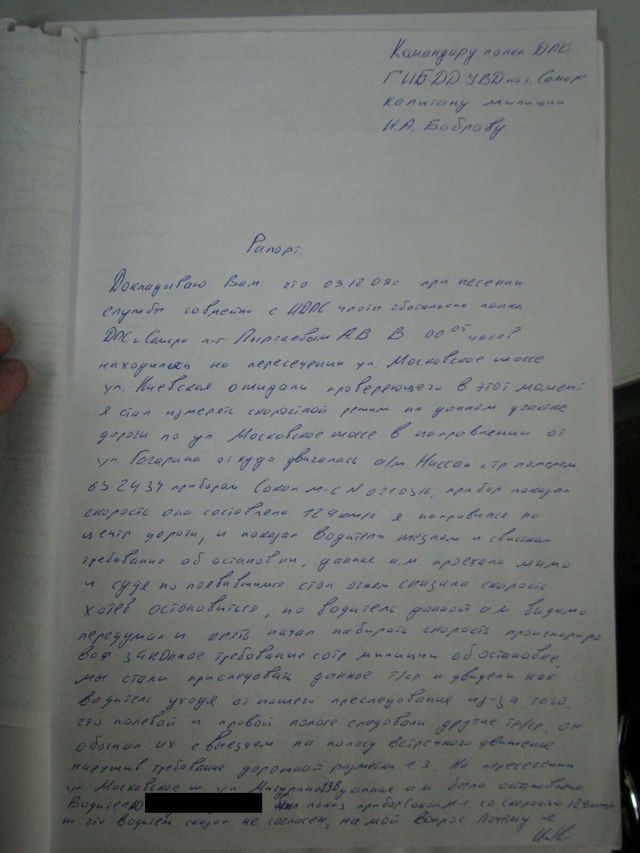 Командиру полка ДПС
ГИБДД УВД по г. Самаре
капитану милиции
Н.А. Боброву.
Рапорт.
Докладываю Вам что 03.12.09г при несении
службы совместно с ИДПС роты батальона полка
ДПС г. Самара л-т А.В В 00 05 часов
находились на пересечении ул. Московское шоссе
ул. Киевская ожидали проверяющего в этот момент
я стал измерять скоростной режим на данном участке
дороги по ул Московское шоссе в направлении от
ул. Гагарина откуда двигалась а/м. Ниссан с гр номером
прибором Сокол М-С N прибор показал
скорость она составляла 129км/ч я направился на
центр дороги, и показал водителю жезлом и свистком
требование об остановки, данная а м. проехала мимо
и судя по появившимся стоп огням снизила скорость
хотев остановиться, но водитель данной а м. видимо
передумал и опять начал набирать скорость проигнориро
вав законное требование сотр милиции об остановке,
мы стали приследовать данное т/ср. и увидели как
водитель уходя от нашего преследования из-за того
что по левой и правой полосе следовали другие тр/ср. он
обогнал их с выездем на полосу встречного движения
нарушив требование дорожной разметки 1.3. На пересечении
ул. Московское ш ул. Мичурина данная а м. была остановлена
Водителю был показ прибор Сокол М-С со скоростью 129км/ч
но что водитель сказал не согласен, на мой вопрос почему не